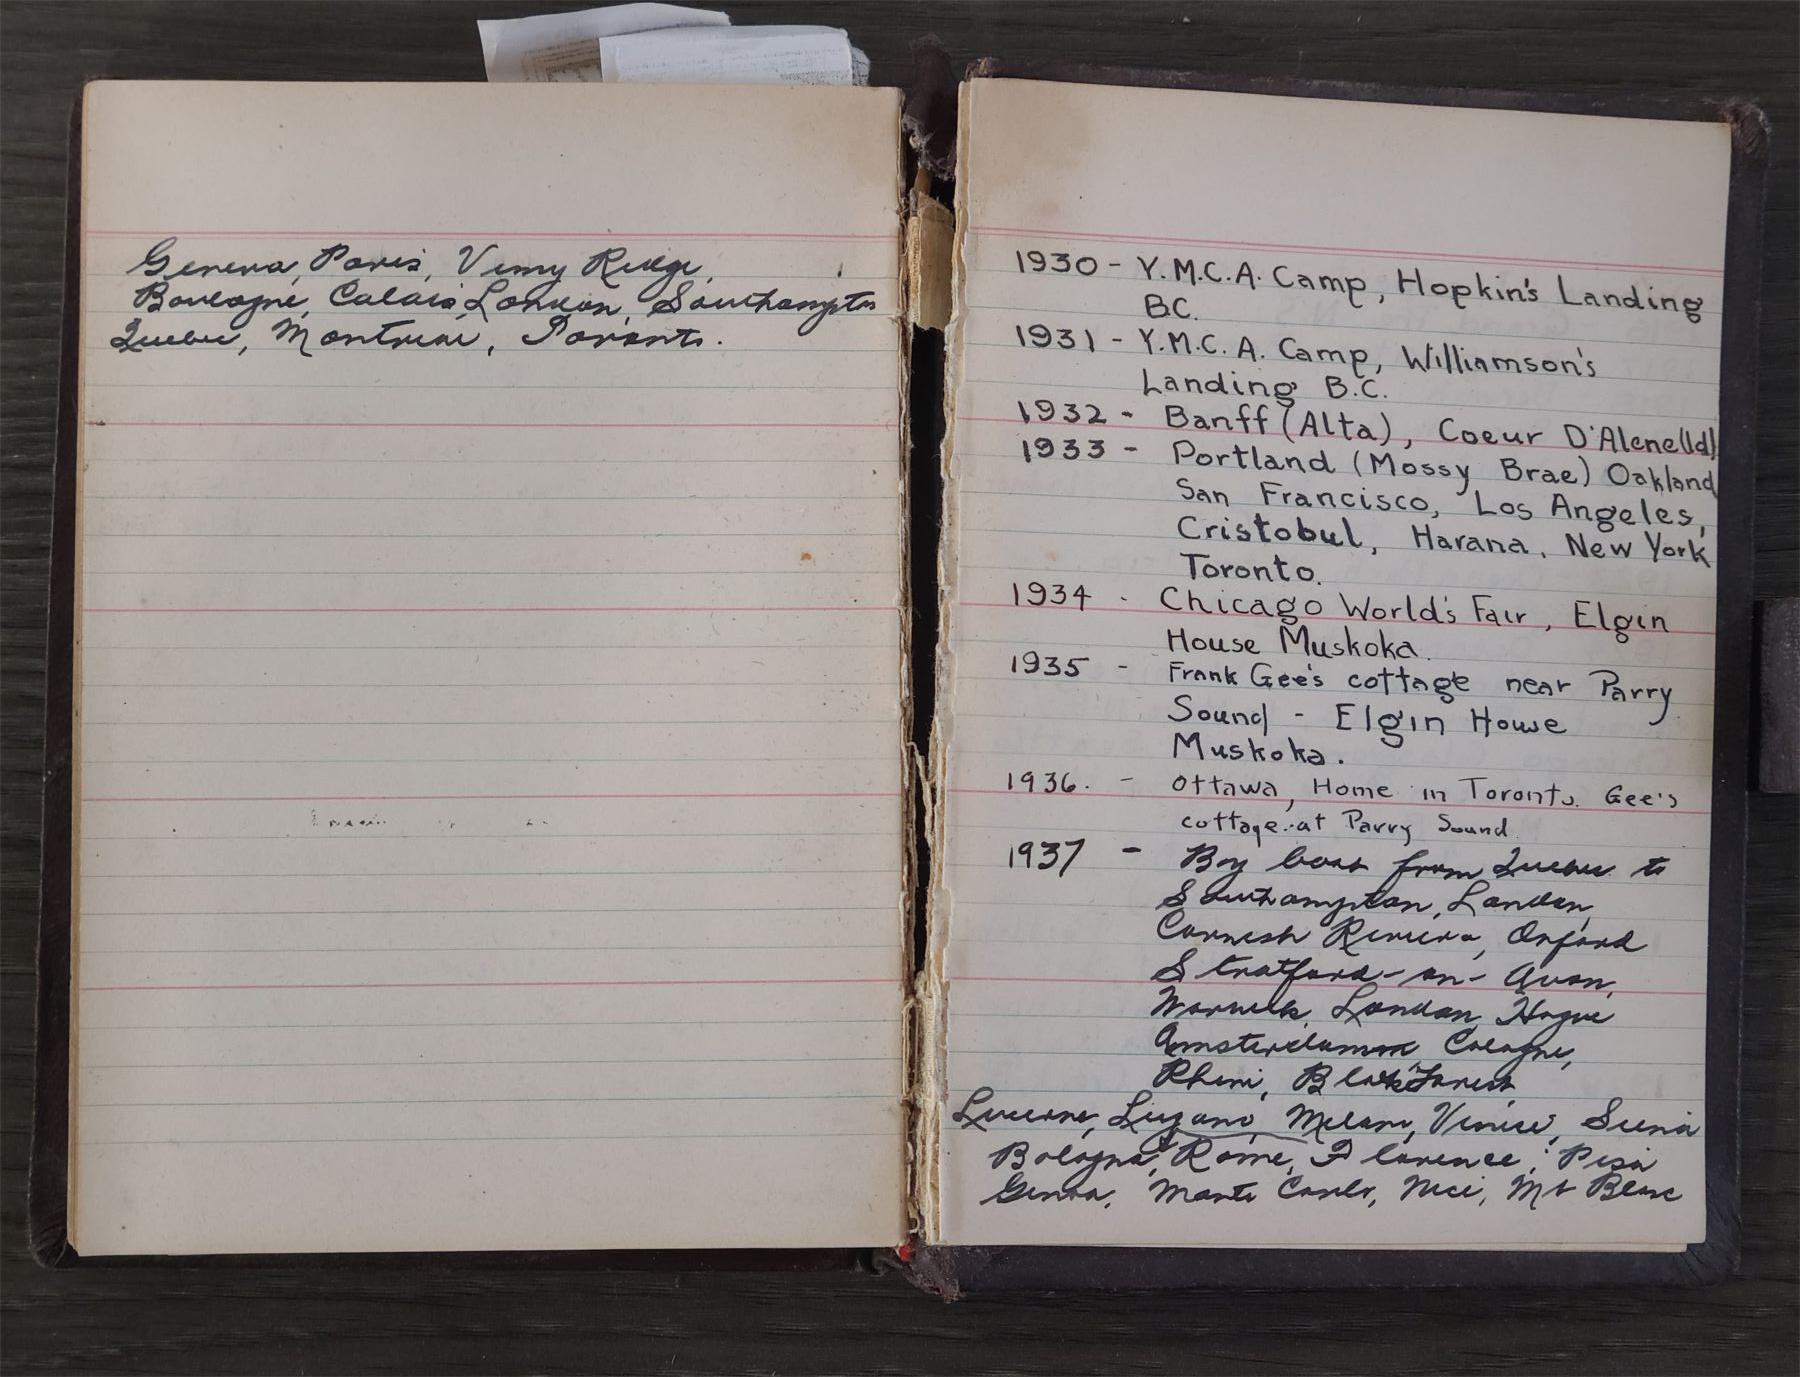 Geneva, Paris, Vimy Ridge,
Boulogne, Calais, London, Southampton
Quebec, Montreal, Toronto.
1930 - Y.M.C.A. Camp, Hopkin's Landing
B.C.
1931 - Y.M.C.A. Camp, Williamson's
Landing B.C.
1932 - Banff (Alta), Coeur D'Alene (Id)
1933 - Portland (Mossy Brae) Oakland
San Francisco, Los Angeles,
Cristobul, Havana, New York
Toronto.
1934 - Chicago World's Fair, Elgin
House Muskoka.
1935 - Frank Gee's cottage near Parry
Sound - Elgin House
Muskoka.
1936. - Ottawa, Home in Toronto. Gee's
cottage at Parry Sound.
1937 - Boy boat from Quebec to
Southampton, London,
Cornish Riviera, Oxford
Stratford-on-Avon,
Warwick, London, Hague
Amsterdam, Cologne,
Rhine, Black Forest,
Lucerne, Lugano, Milano, Venice, Siena
Bologna, Rome, Florence, Pisa
Genoa, Monte Carlo, Nice, Mt Blanc